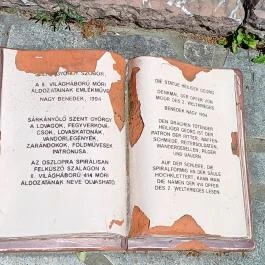 SZENT GYÖRGY SZOBOR
A II. VILÁGHÁBORÚ MÓRI
ÁLDOZATAINAK EMLÉKMŰVE
NAGY BENEDEK, 1994
SÁRKÁNYÖLŐ SZENT GYÖRGY
A LOVAGOK, FEGYVERKOVÁ-
CSOK, LOVASKATONÁK,
VÁNDORLEGÉNYEK,
ZARÁNDOKOK, FÖLDMŰVESEK
PATRÓNUSA.
AZ OSZLOPRA SPIRÁLISAN
FELKÚSZÓ SZALAGON A
II. VILÁGHÁBORÚ 414 MÓRI
ÁLDOZATAINAK NEVE OLVASHATÓ.
DIE STATUE HEILIGER GEORG
DENKMAL DER OPFER VON
MOOR DES 2. WELTKRIEGES
BENEDEK NAGY 1994
DEN DRACHEN TÖTENDER
HEILIGER GEORG IST DER
PATRON DER RITTER, WAFFEN-
SCHMIEDE, REITERSOLDATEN,
WANDERGESELLEN, PILGER
UND BAUERN
AUF DER SCHLEIFE, DIE
SPIRALFÖRMIG AN DER SÄULE
HOCHKLETTERT, KANN MAN
DIE NAMEN DER 414 OPFER
DES 2. WELTKRIEGES LESEN